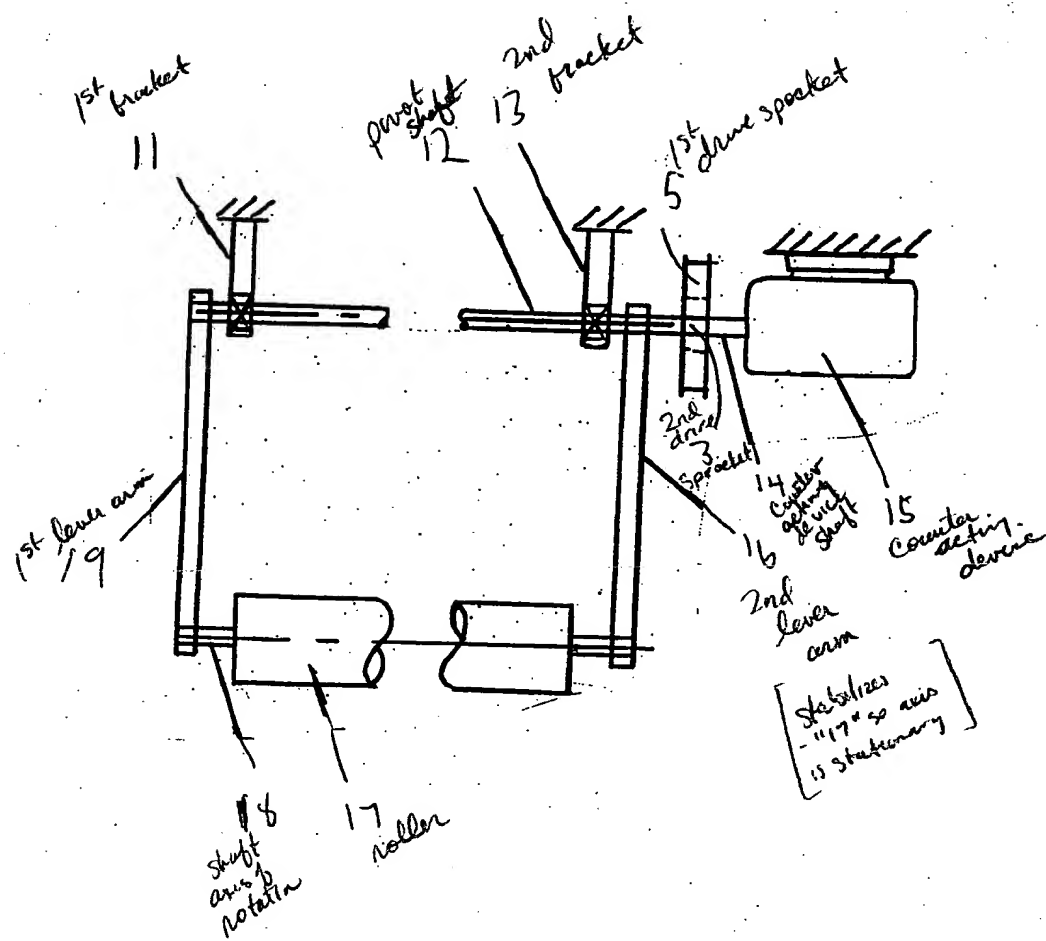 1st bracket
11
pivot
shaft
12
2nd
bracket
13
1st
drive spocket
5
2nd
drive
3
sprocket
14
counter
acting
device
shaft
15
Counter
acting
device
16
2nd
lever
arm
[stabilizes
- "17" so axis
is stationary]
1st lever arm
19
18
shaft
axis of
rotation
17
roller